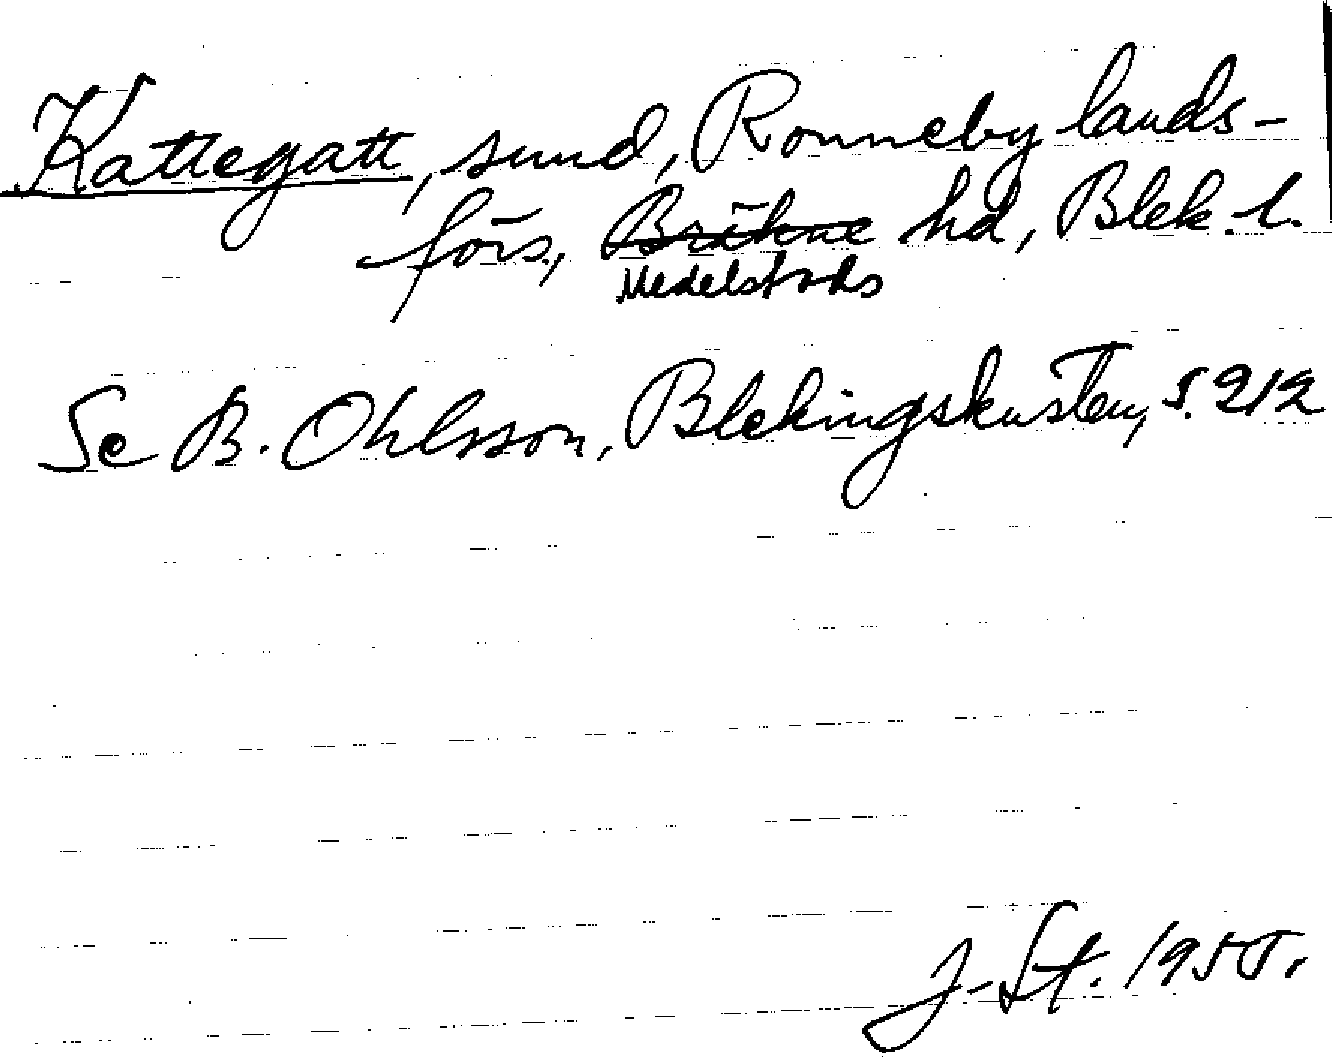 Kattegatt, sund, Ronneby lands-
förs., Bräkne hd, Blek. l.
Medelstads
Se B. Ohlsson, Blekingskusten, s. 212
J-St. 1955.